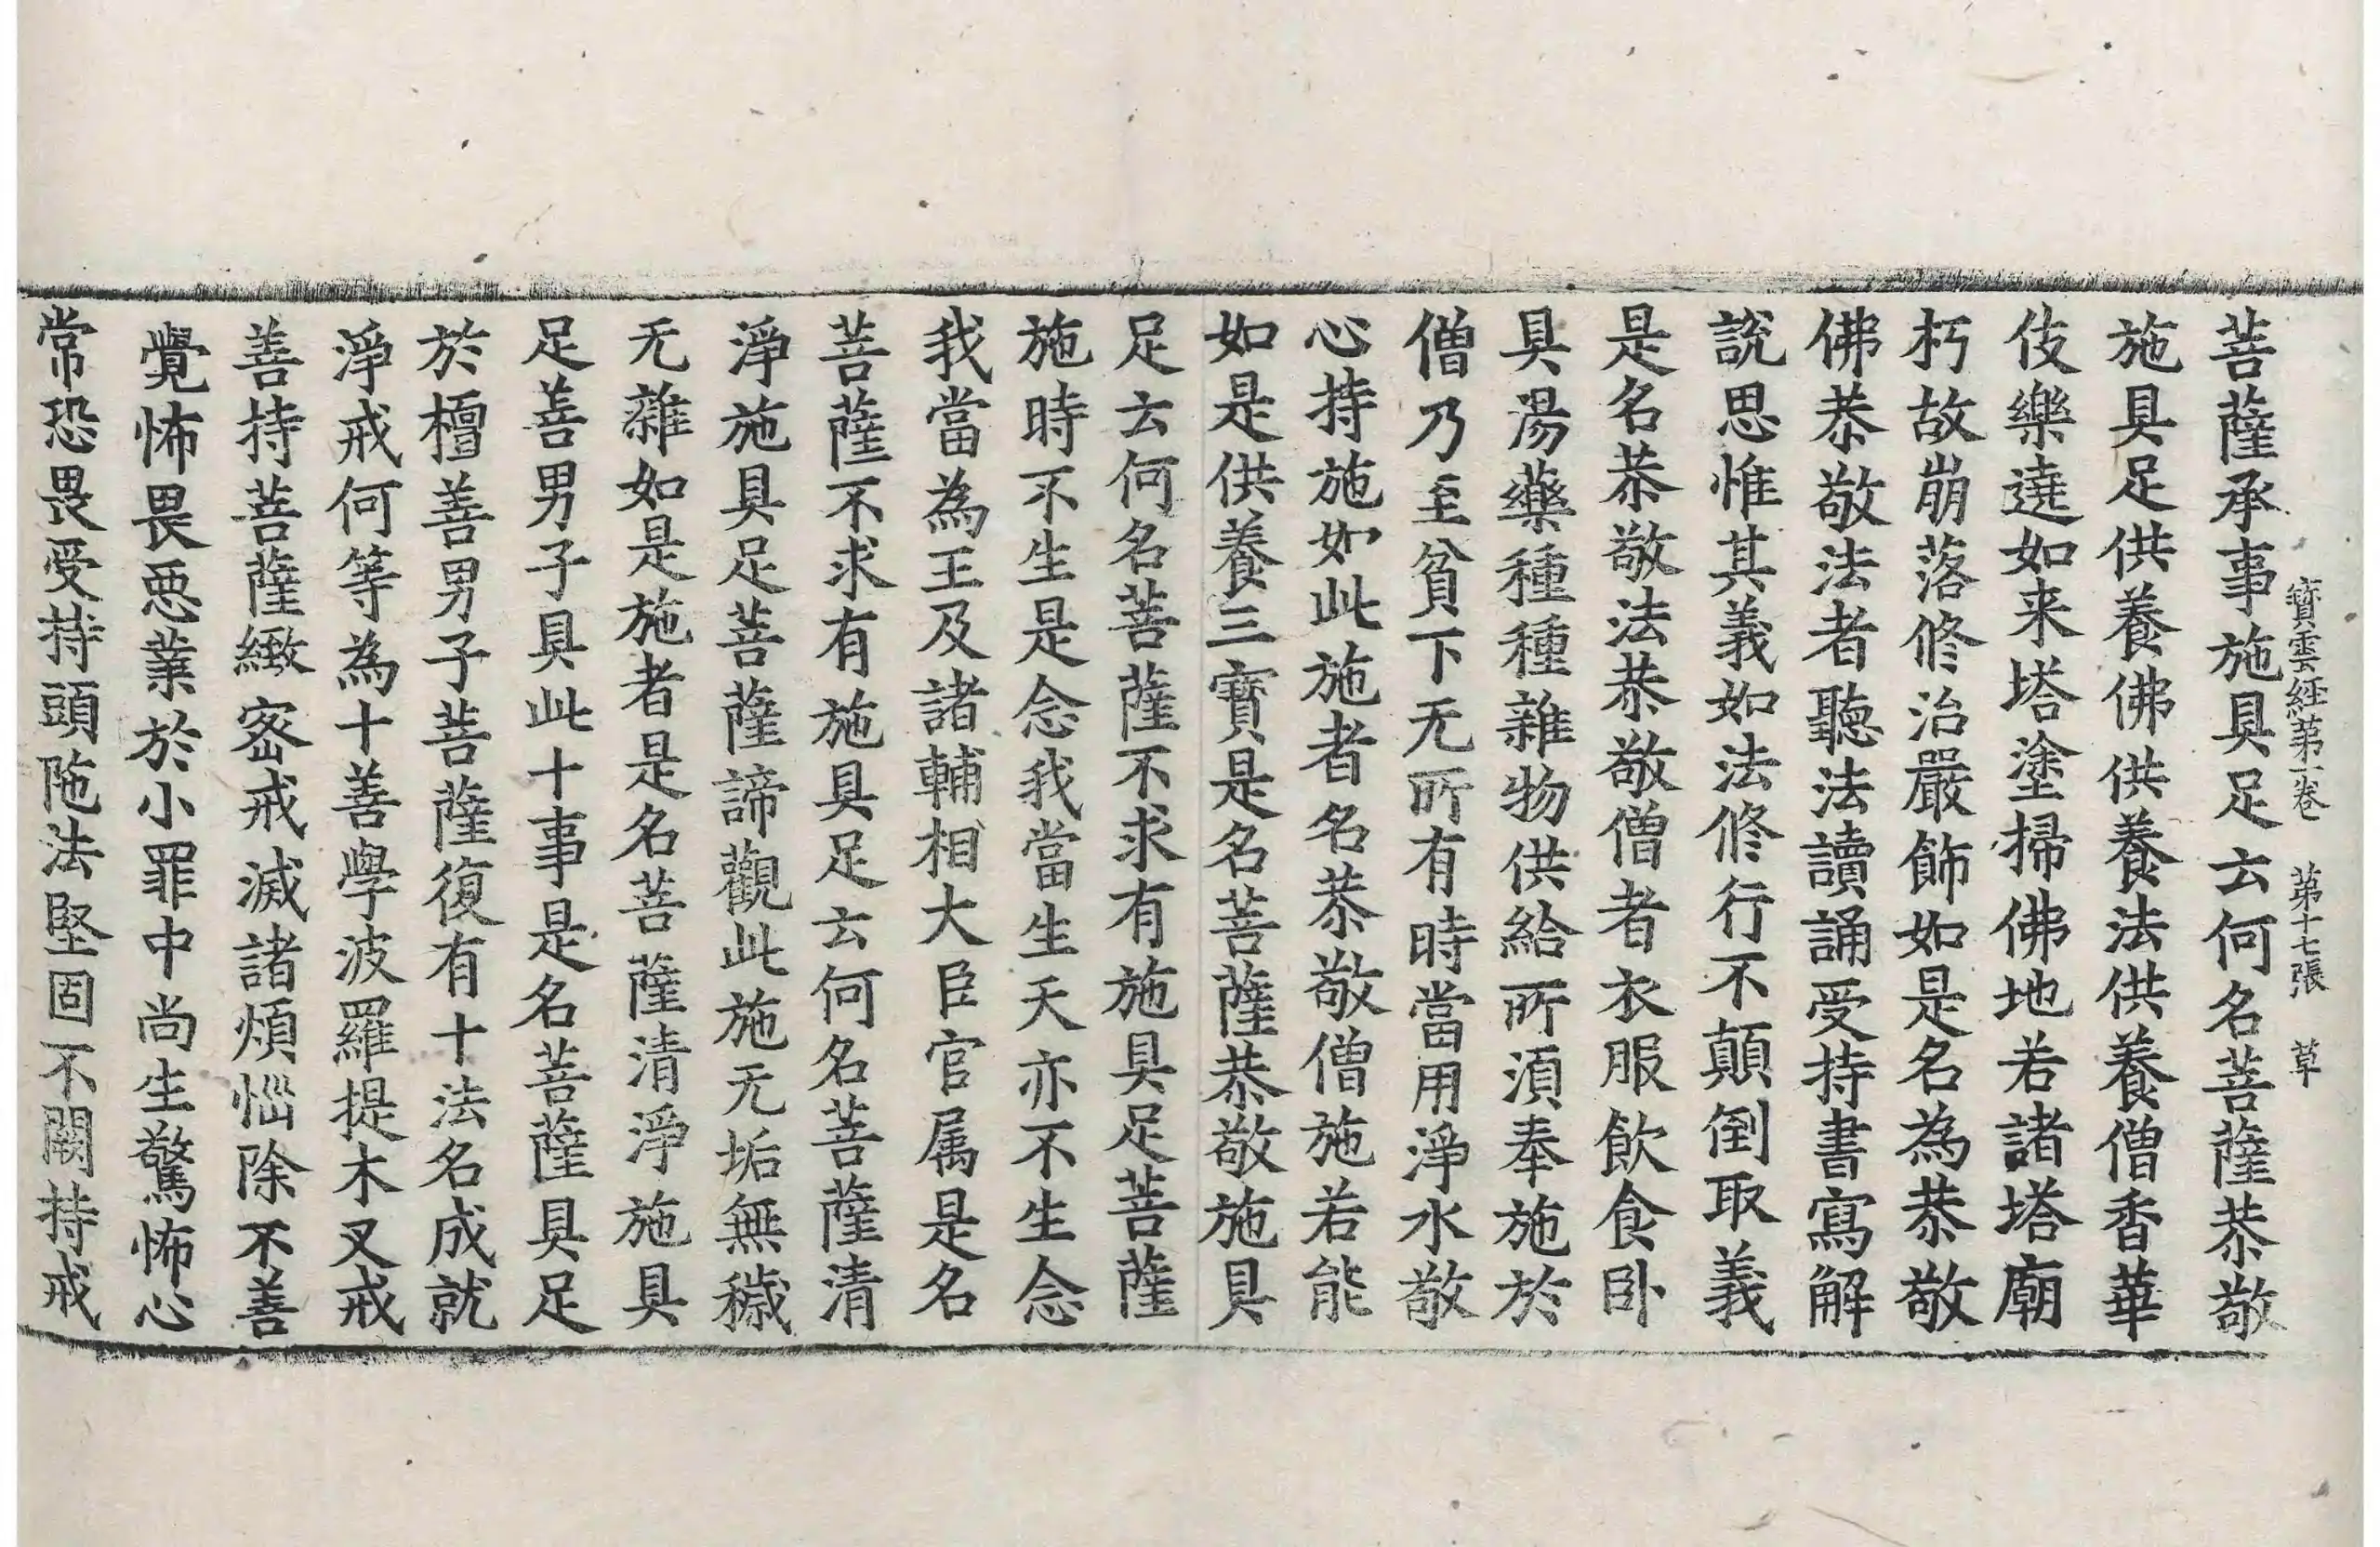 寶雲經第一卷 第十七張 草
菩薩承事施具足云何名菩薩恭敬
施具足供養佛供養法供養僧香華
伎樂遶如来塔塗掃佛地若諸塔廟
朽故崩落修治嚴飾如是名為恭敬
佛恭敬法者聽法讀誦受持書寫解
說思惟其義如法修行不顛倒取義
是名恭敬法恭敬僧者衣服飲食卧
具湯藥種種雜物供給所湏奉施於
僧乃至貧下无所有時當用淨水敬
心持施如此施者名恭敬僧施若能
如是供養三寶是名菩薩恭敬施具
足云何名菩薩不求有施具足菩薩
施時不生是念我當生天亦不生念
我當為王及諸輔相大臣官属是名
菩薩不求有施具足云何名菩薩清
淨施具足菩薩諦觀此施无垢無穢
无雜如是施者是名菩薩清淨施具
足善男子具此十事是名菩薩具足
於檀善男子菩薩復有十法名成就
淨戒何等為十善學波羅提木叉戒
善持菩薩緻密戒滅諸煩惱除不善
覺怖畏惡業於小罪中尚生驚怖心
常恐畏受持頭陁法堅固不闕持戒